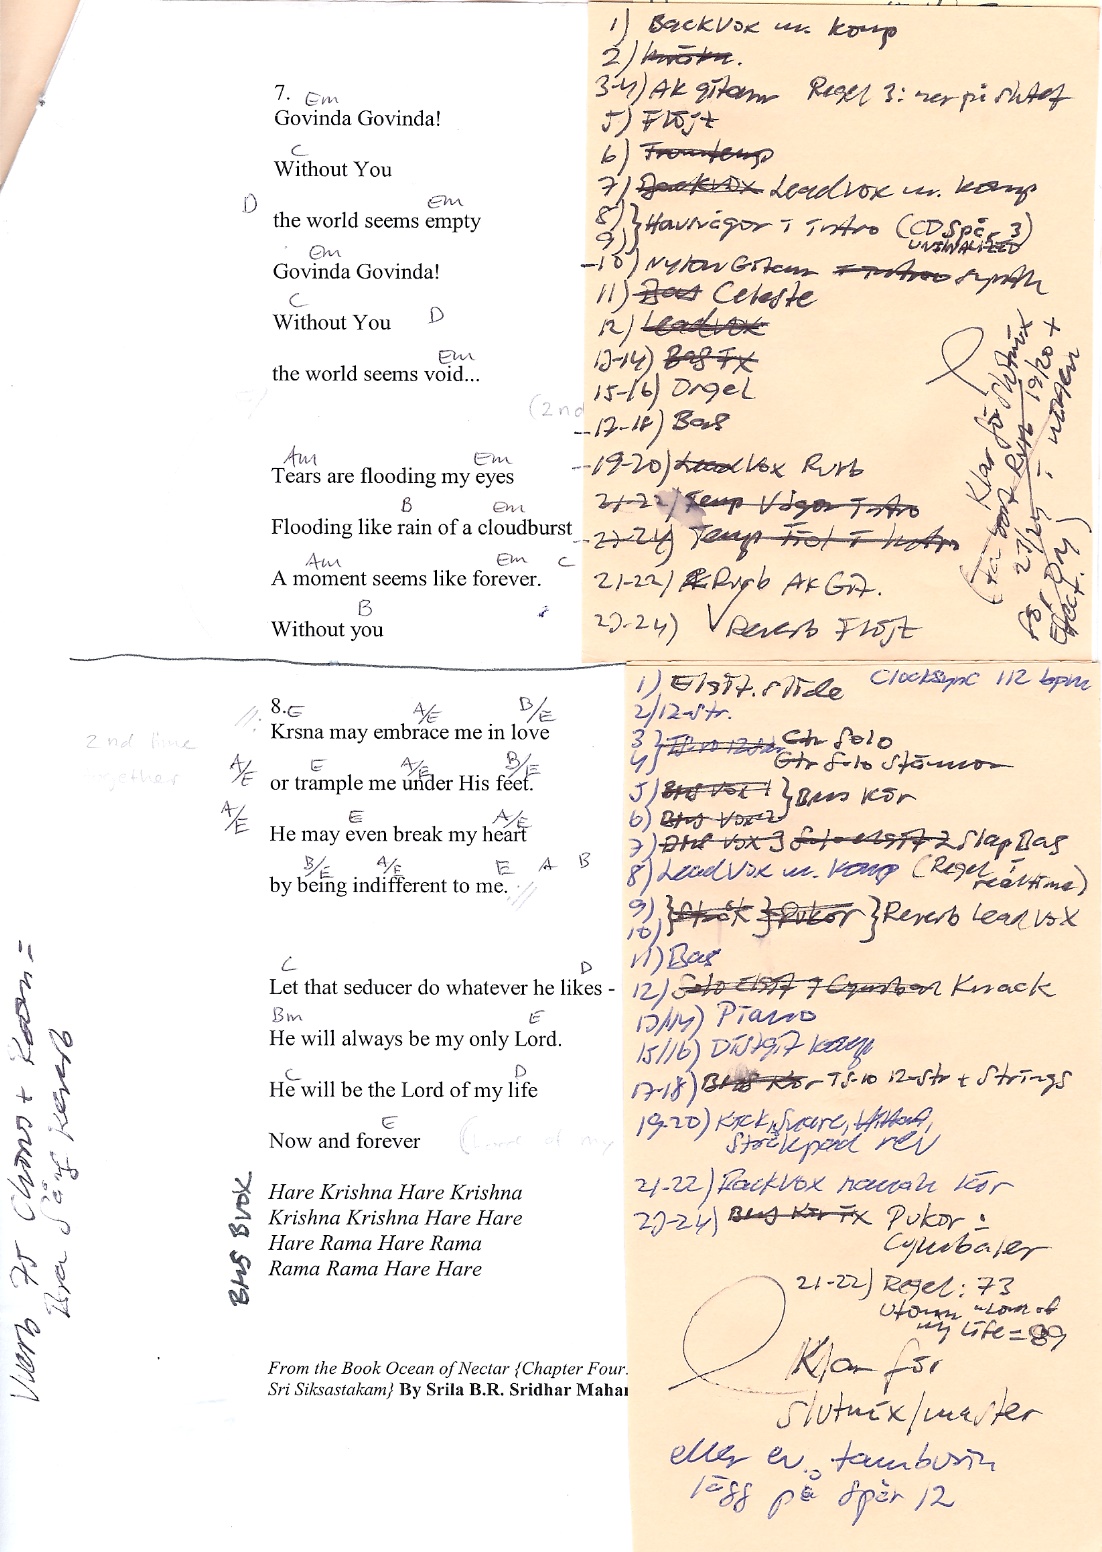 7. Em
Govinda Govinda!
C
Without You
D Em
the world seems empty
Em
Govinda Govinda!
C
Without You D
Em
the world seems void...
(2nd
Am Em
Tears are flooding my eyes
B Em
Flooding like rain of a cloudburst
Am Em C
A moment seems like forever.
B
Without you
1) BackVox m. komp
2)
3-4) Ak gitarr Regel 3: ner på slutet
5) Flöjt
6)
7) BackVox LeadVox m. komp
8) } Havsvågor i Intro (CD Spår 3)
9) UNFINALIZED
10) Nylon Gitarr synth
11) Bas Celeste
12) LeadVox
13-14) Bas Fx
15-16) Orgel
17-18) Bas
19-20) Lead Vox Rvrb
21-22) Temp Vågor Intro
23-24) Temp Fiol i Intro
21-22) Rvrb Ak Git.
23-24) Reverb Flöjt
Klar för slutmix
(Ta bort Rvrb 19/20 +
23/24 i början
för Dry
Effect.)
8. E A/E B/E
Krsna may embrace me in love
2nd line
together
A/E E A/E B/E
or trample me under His feet.
A/E E A/E
He may even break my heart
B/E A/E E A B
by being indifferent to me.
C D
Let that seducer do whatever he likes -
Bm E
He will always be my only Lord.
C D
He will be the Lord of my life
E
Now and forever (Lord of my
BHS BVOX
Hare Krishna Hare Krishna
Krishna Krishna Hare Hare
Hare Rama Hare Rama
Rama Rama Hare Hare
From the Book Ocean of Nectar {Chapter Four.
Sri Siksastakam} By Srila B.R. Sridhar Mahar
Verb 75 Chorus + Room =
Bra Sång Reverb
1) Elgit. slide Clocksync 112 bpm
2) 12-str.
3 } Gtr Solo
4) Gtr Solo Stämmor
5) BHS Vox 1 } BHS Kör
6) BHS Vox 2
7) BHS Vox 3 Solo elgit 2 Slap Bas
8) LeadVox m. komp (Regel i realtime)
9) } } Pukor } Reverb Lead Vox
10)
11) Bas
12) Solo Elgit 7 Cymbal Knack
13/14) Piano
15/16) Distgit komp
17-18) BHS Kör TS-10 12-str + Strings
19-20) Kick, Snare, HiHat,
Stockpad rev
21-22) Backvox kör
23-24) BHS Kör Fx Pukor :
Cymbaler
21-22) Regel: 73
Utom "Lord of
my life = 89
Klar för
slutmix/master
eller ev. tamburin
lägg på spår 12